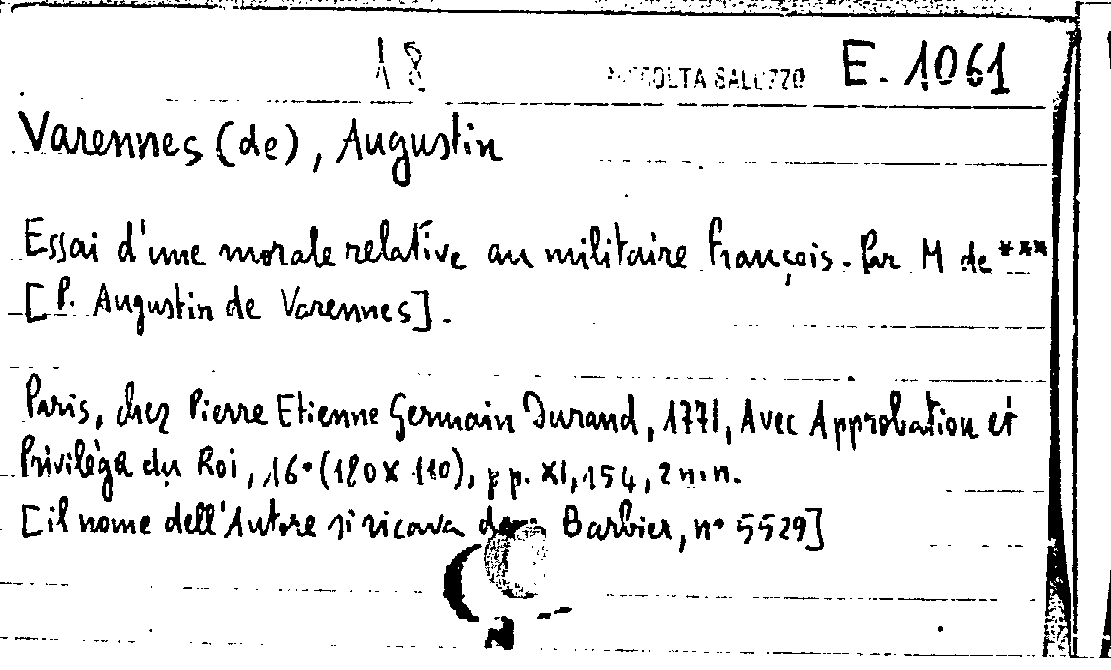 18 RACCOLTA SALUZZO E. 1061
Varennes (de), Augustin
Essai d'une morale relative au militaire françois. Par M de ***
[P. Augustin de Varennes].
Paris, chez Pierre Etienne Germain Durand, 1771, Avec Approbation et
Privilège du Roi, 16° (180 x 110), pp. XI, 154, 2 n.n.
[il nome dell'Autore si ricava da Barbier, n° 5529]